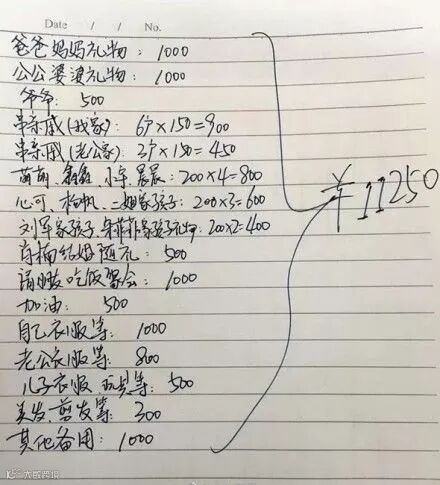 Date / / No.
爸爸妈妈礼物：1000
公公婆婆礼物：1000
爷爷：500
串亲戚(我家)：6户×150=900
串亲戚(老公家)：3户×150=450
萌萌、鑫鑫、小宇、晨晨：200×4=800
心可、杨帆、二姐家孩子：200×3=600
刘军家孩子、朱菲菲家孩子礼物：200×2=400
结婚随礼：500
请 吃饭聚会：1000
加油：500
自己衣服等：1000
老公衣服等：800
儿子衣服 玩具等：500
美发、剪发等：300
其他备用：1000
¥11250
大威跨境